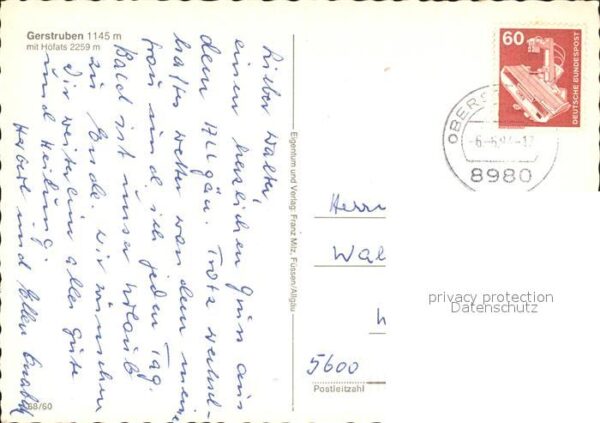 Gerstruben 1145 m
mit Höfats 2259 m
Lieber Walter,
einen herzlichen Gruß aus
dem Allgäu. Trotz wechsel-
haftes Wetter war dem meine
Frau und ich jeden Tag.
Bald ist unser Urlaub
zu Ende. Wir wünschen
Dir weiterhin alles gute
und Heilung.
Herbert und Ellen
Eigentum und Verlag: Franz Milz, Füssen/Allgäu
60
DEUTSCHE BUNDESPOST
OBERS
8980
Herrn
Wal
5600
Postleitzahl
88/60
privacy protection
Datenschutz